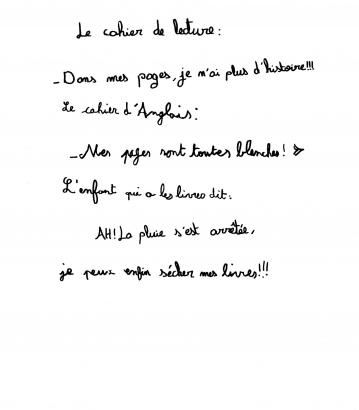 Le cahier de lecture :
- Dans mes pages, je n'ai plus d'histoire!!!
Le cahier d'Anglais :
- Mes pages sont toutes blanches! »
L'enfant qui a les livres dit :
AH! La pluie s'est arrêtée,
je peux enfin sécher mes livres!!!